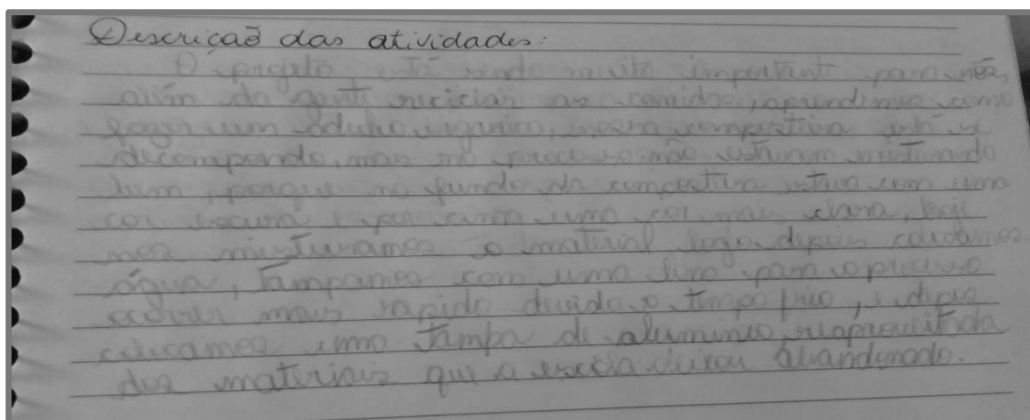 Descrição das atividades:
O projeto está sendo muito importante para nós,
além da gente reciclar as comidas, aprendemos como
fazer um adubo organico, nossa composteira está se
decompondo, mas no processo não estavam misturando
bem, porque no fundo da composteira estava com uma
cor escura e por cima uma cor mais clara, hoje
nós misturamos o material logo depois colocamos
água, Tampamos com uma lona para o processo
ocorrer mais rapido devido o tempo frio, e depois
colocamos uma Tampa de aluminio, reaproveitada
dos materiais que a escola deixou abandonado.